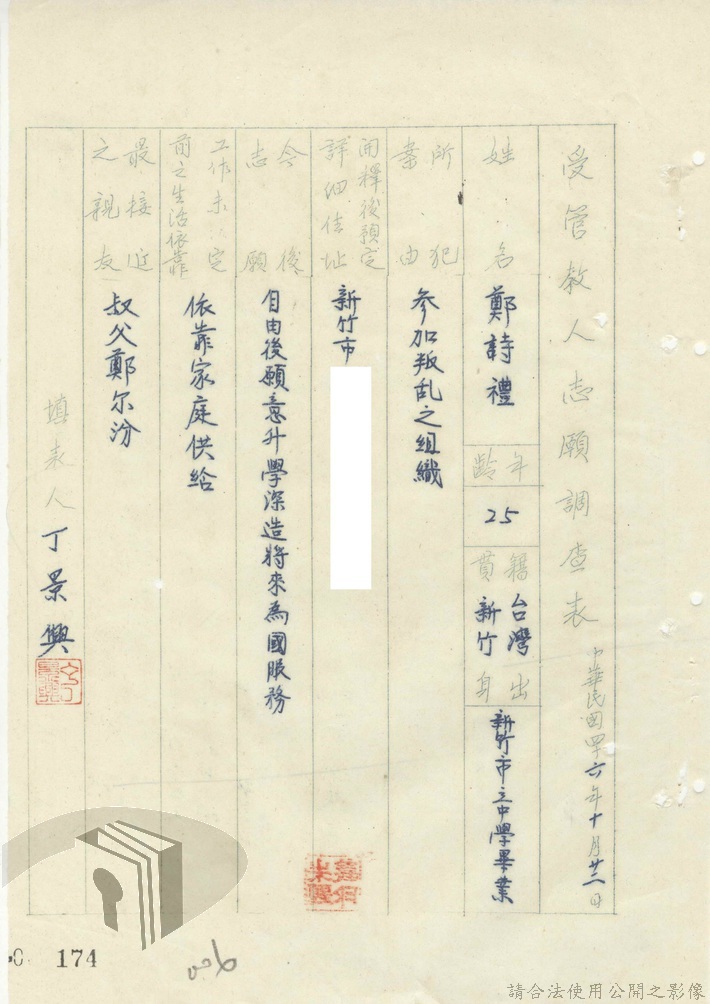 受管教人志願調查表
中華民國四六年十月廿二日
姓名
鄭詩禮
年齡
25
籍貫
台灣新竹
出身
新竹市立中學畢業
所犯案由
參加叛乱之組織
開釋後預定詳细住址
新竹市
今後志願
自由後願意升學深造將來為國服務
工作未定前之生活依靠
依靠家庭供给
最接近之親友
叔父鄭尔汾
填表人 丁景興
174
006
請合法使用公開之影像